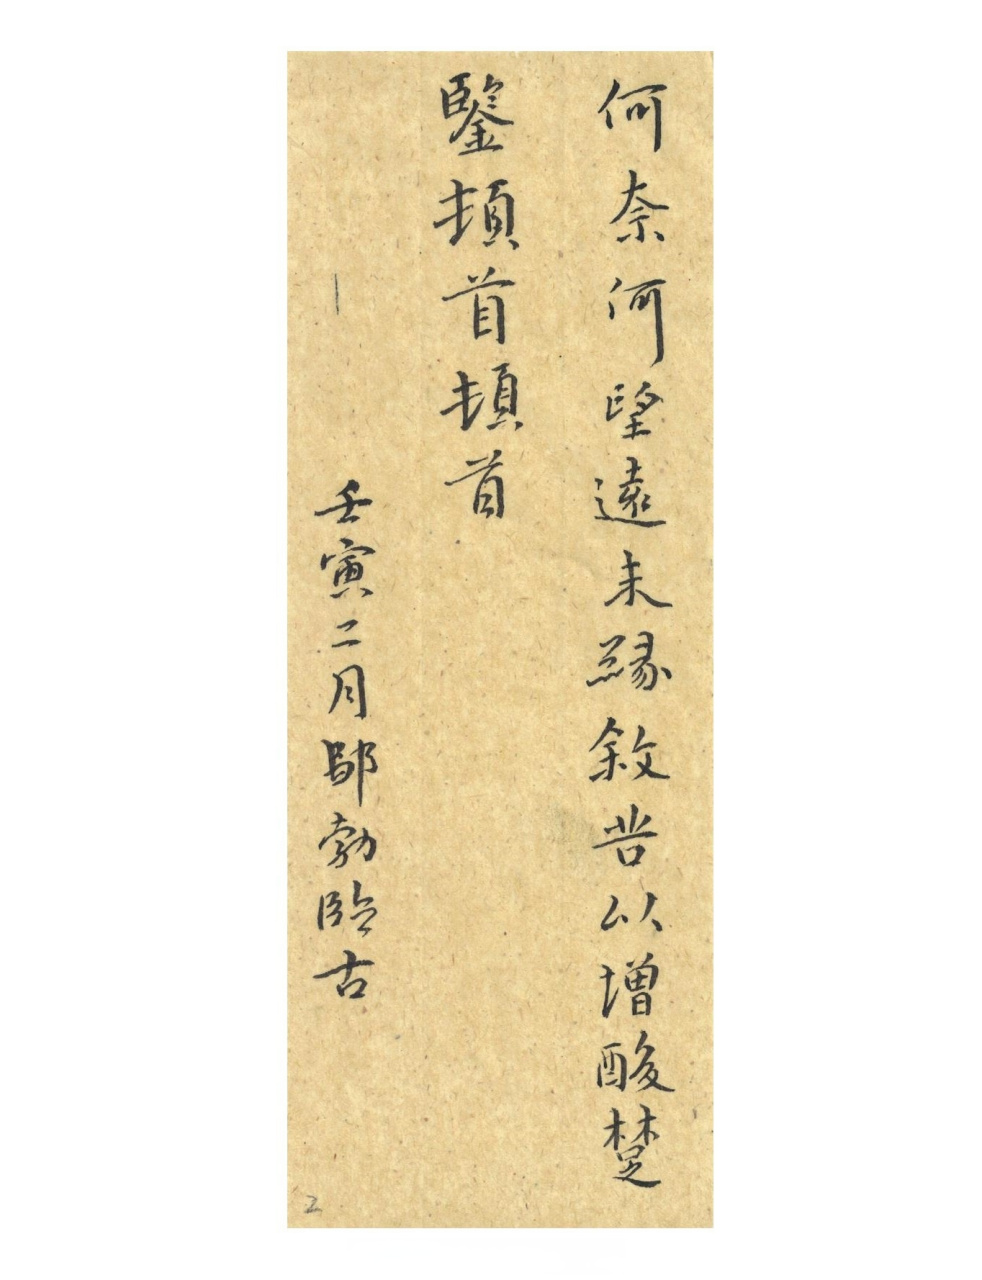 何奈何望遠未緣敘苦以增酸楚
鑒頓首頓首
壬寅二月鄔勃臨古
2